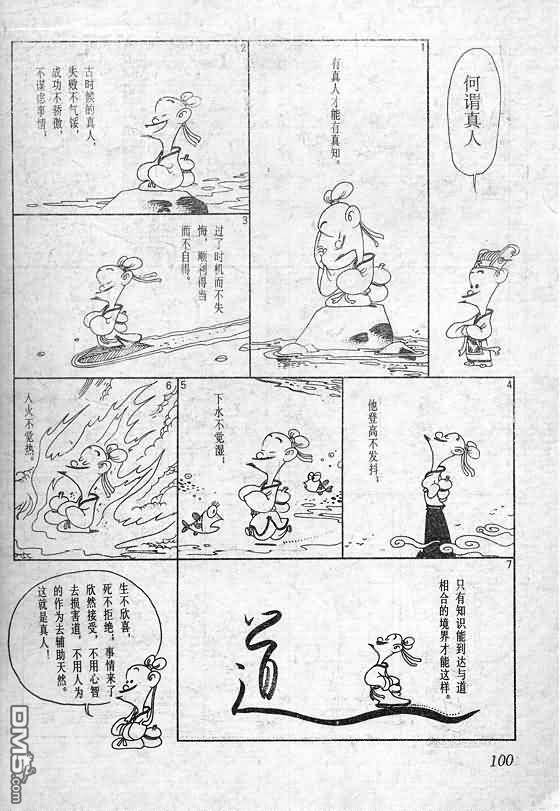 何谓真人
1
有真人才能有真知。
2
古时候的真人，
失败不气馁，
成功不骄傲，
不谋虑事情；
3
过了时机而不失
悔，顺利得当
而不自得。
4
他登高不发抖；
5
下水不觉湿；
6
入火不觉热。
7
只有知识能到达与道
相合的境界才能这样。
道
生不欣喜，
死不拒绝；事情来了
欣然接受，不用心智
去损害道，不用人为
的作为去辅助天然。
这就是真人！
100
DM5.com